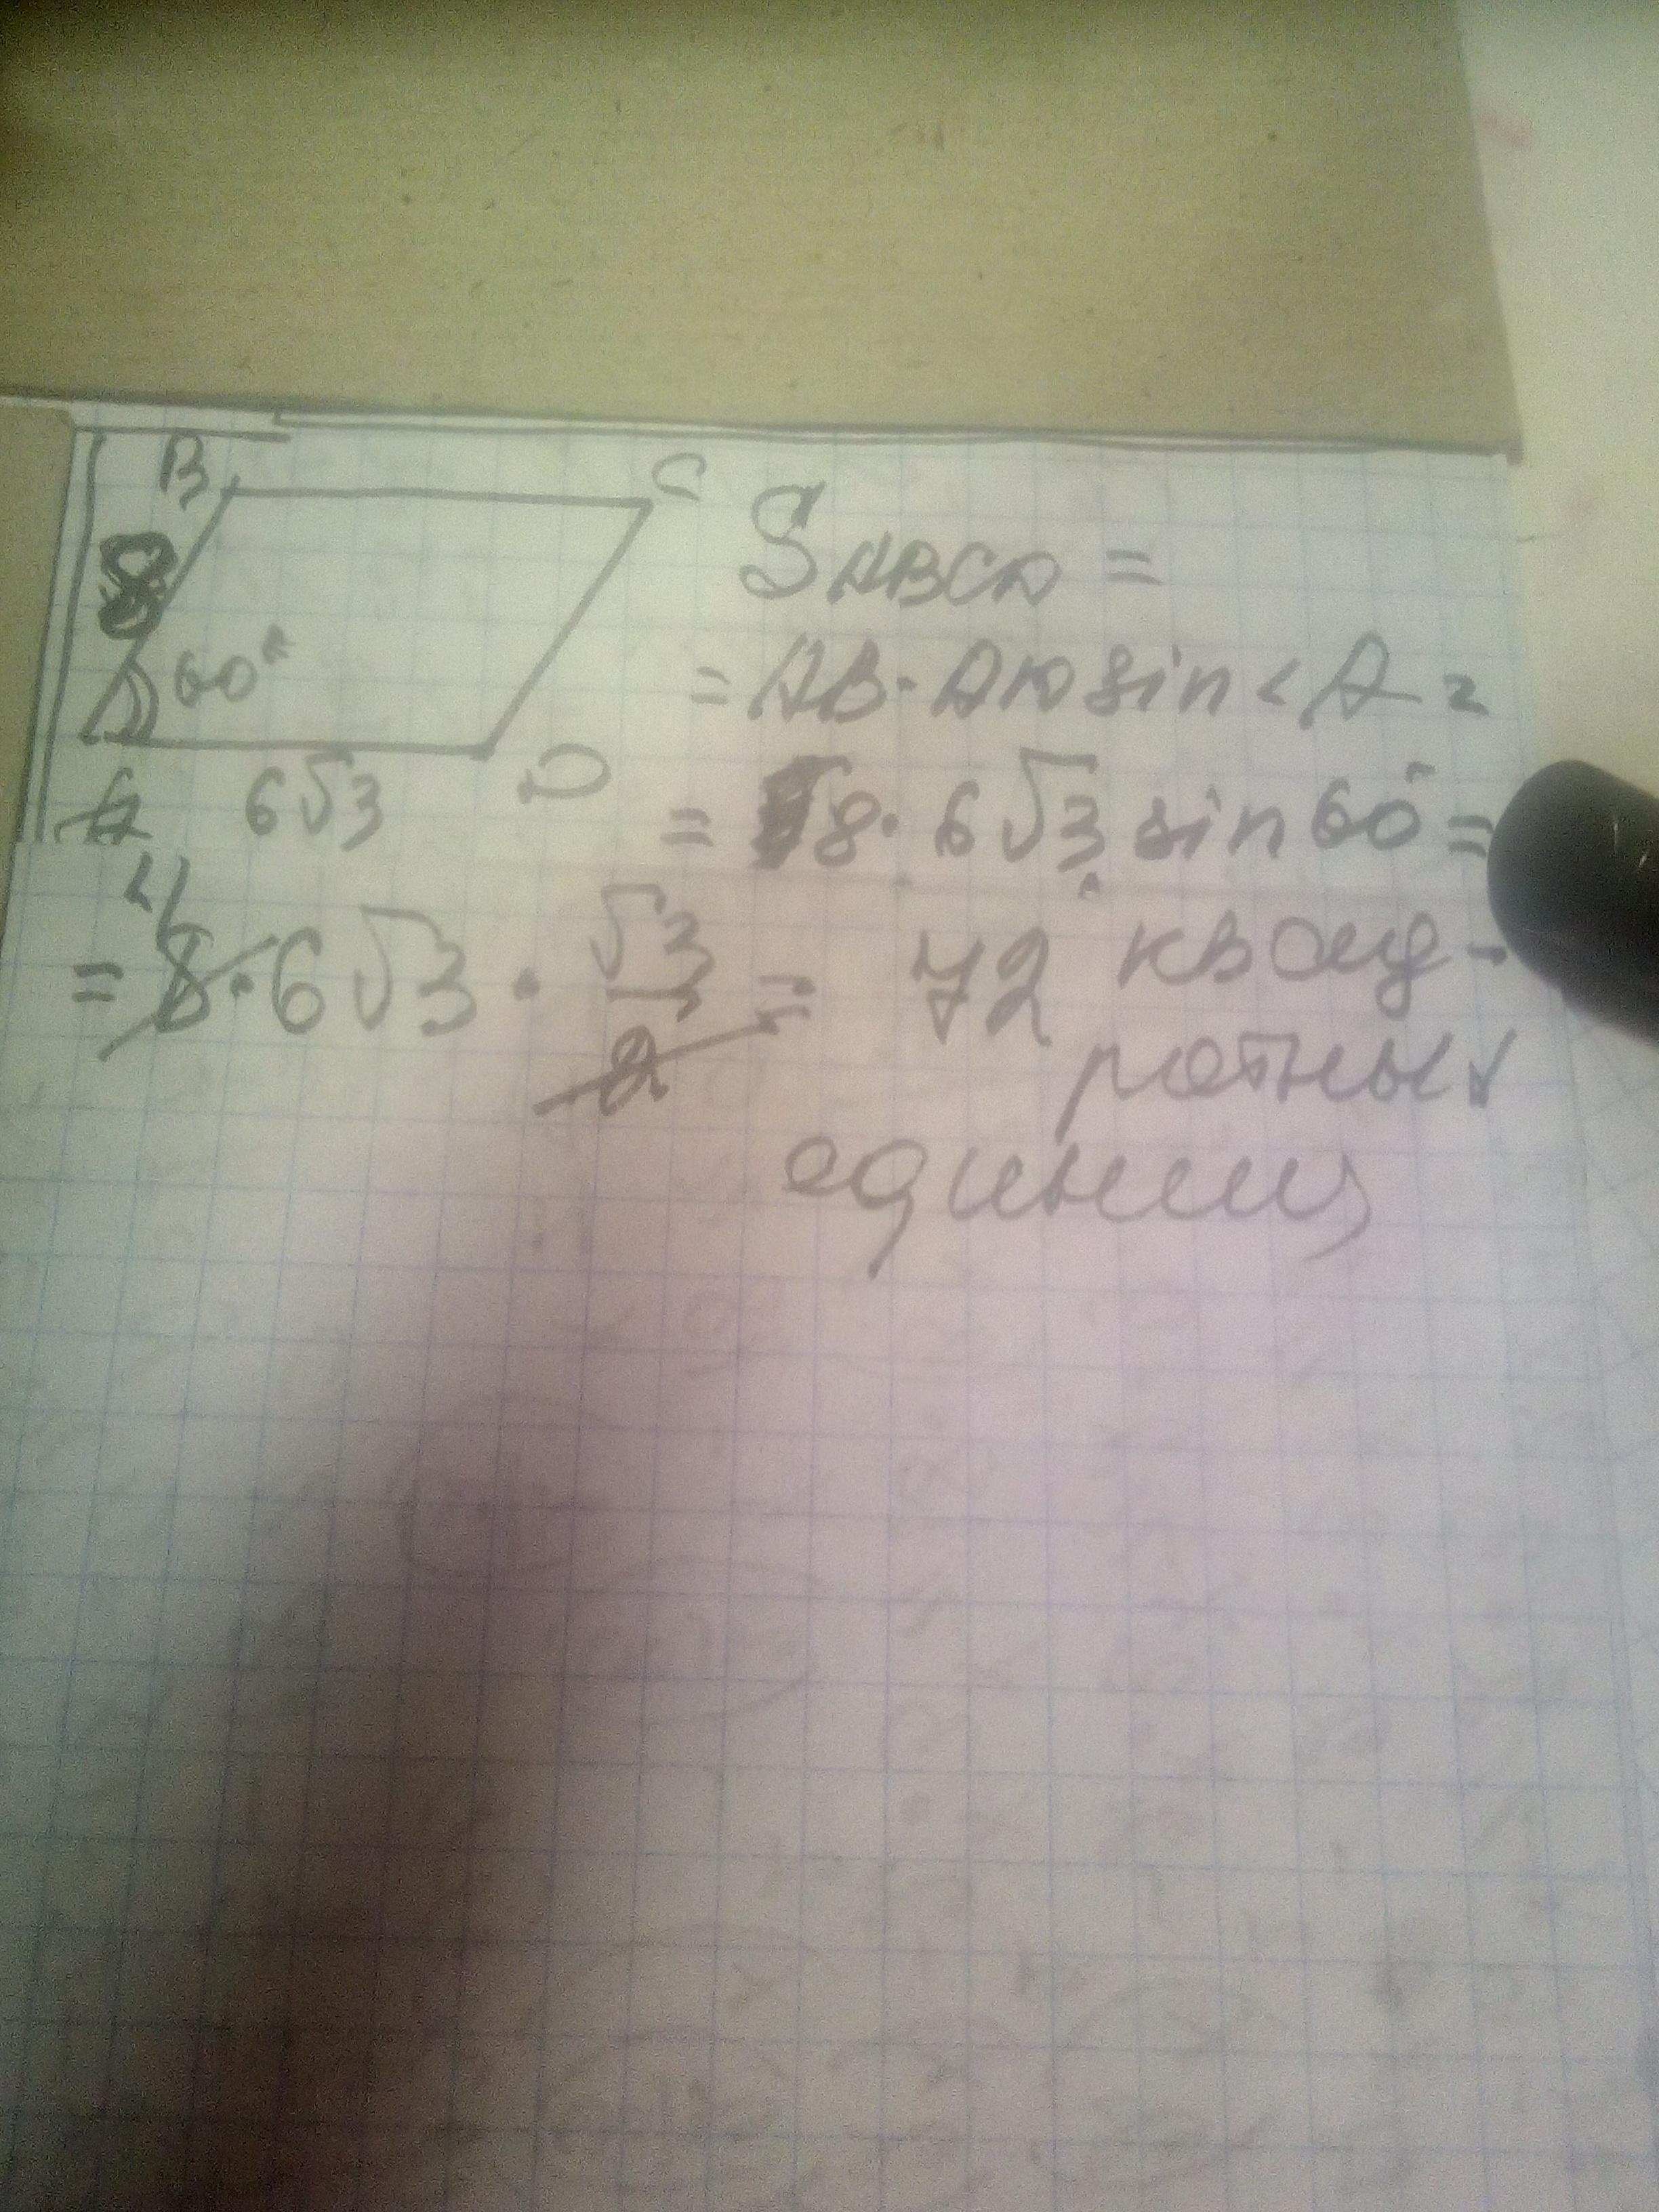 B C
8
60°
A 6√3 D
S ABCD =
= AB · AD sin < A =
= 8 · 6√3 sin 60° =
4
= 8 · 6√3 · √3/2 = 72 квад-
ратных
единиц